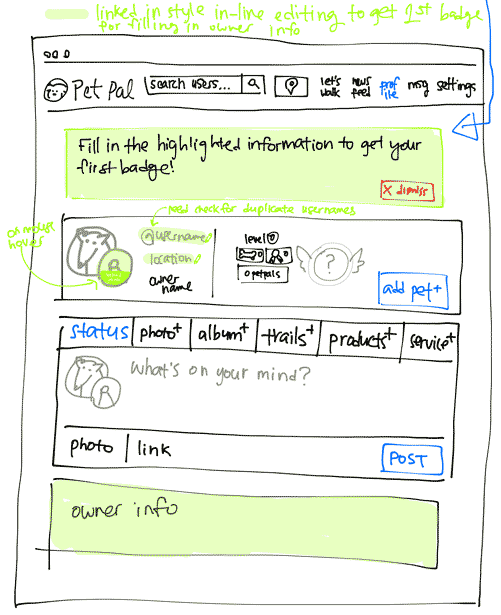 linked in style in-line editing to get 1st badge
for filling in owner info
Pet Pal
search users...
let's walk
news feed
profile
msg
settings
Fill in the highlighted information to get your
first badge!
X dismiss
need check for duplicate usernames
on mouse
hover
@username
location
owner
name
level 0
0 petpals
?
add pet+
status
photo+
album+
trails+
products+
service+
What's on your mind?
photo
link
POST
owner info